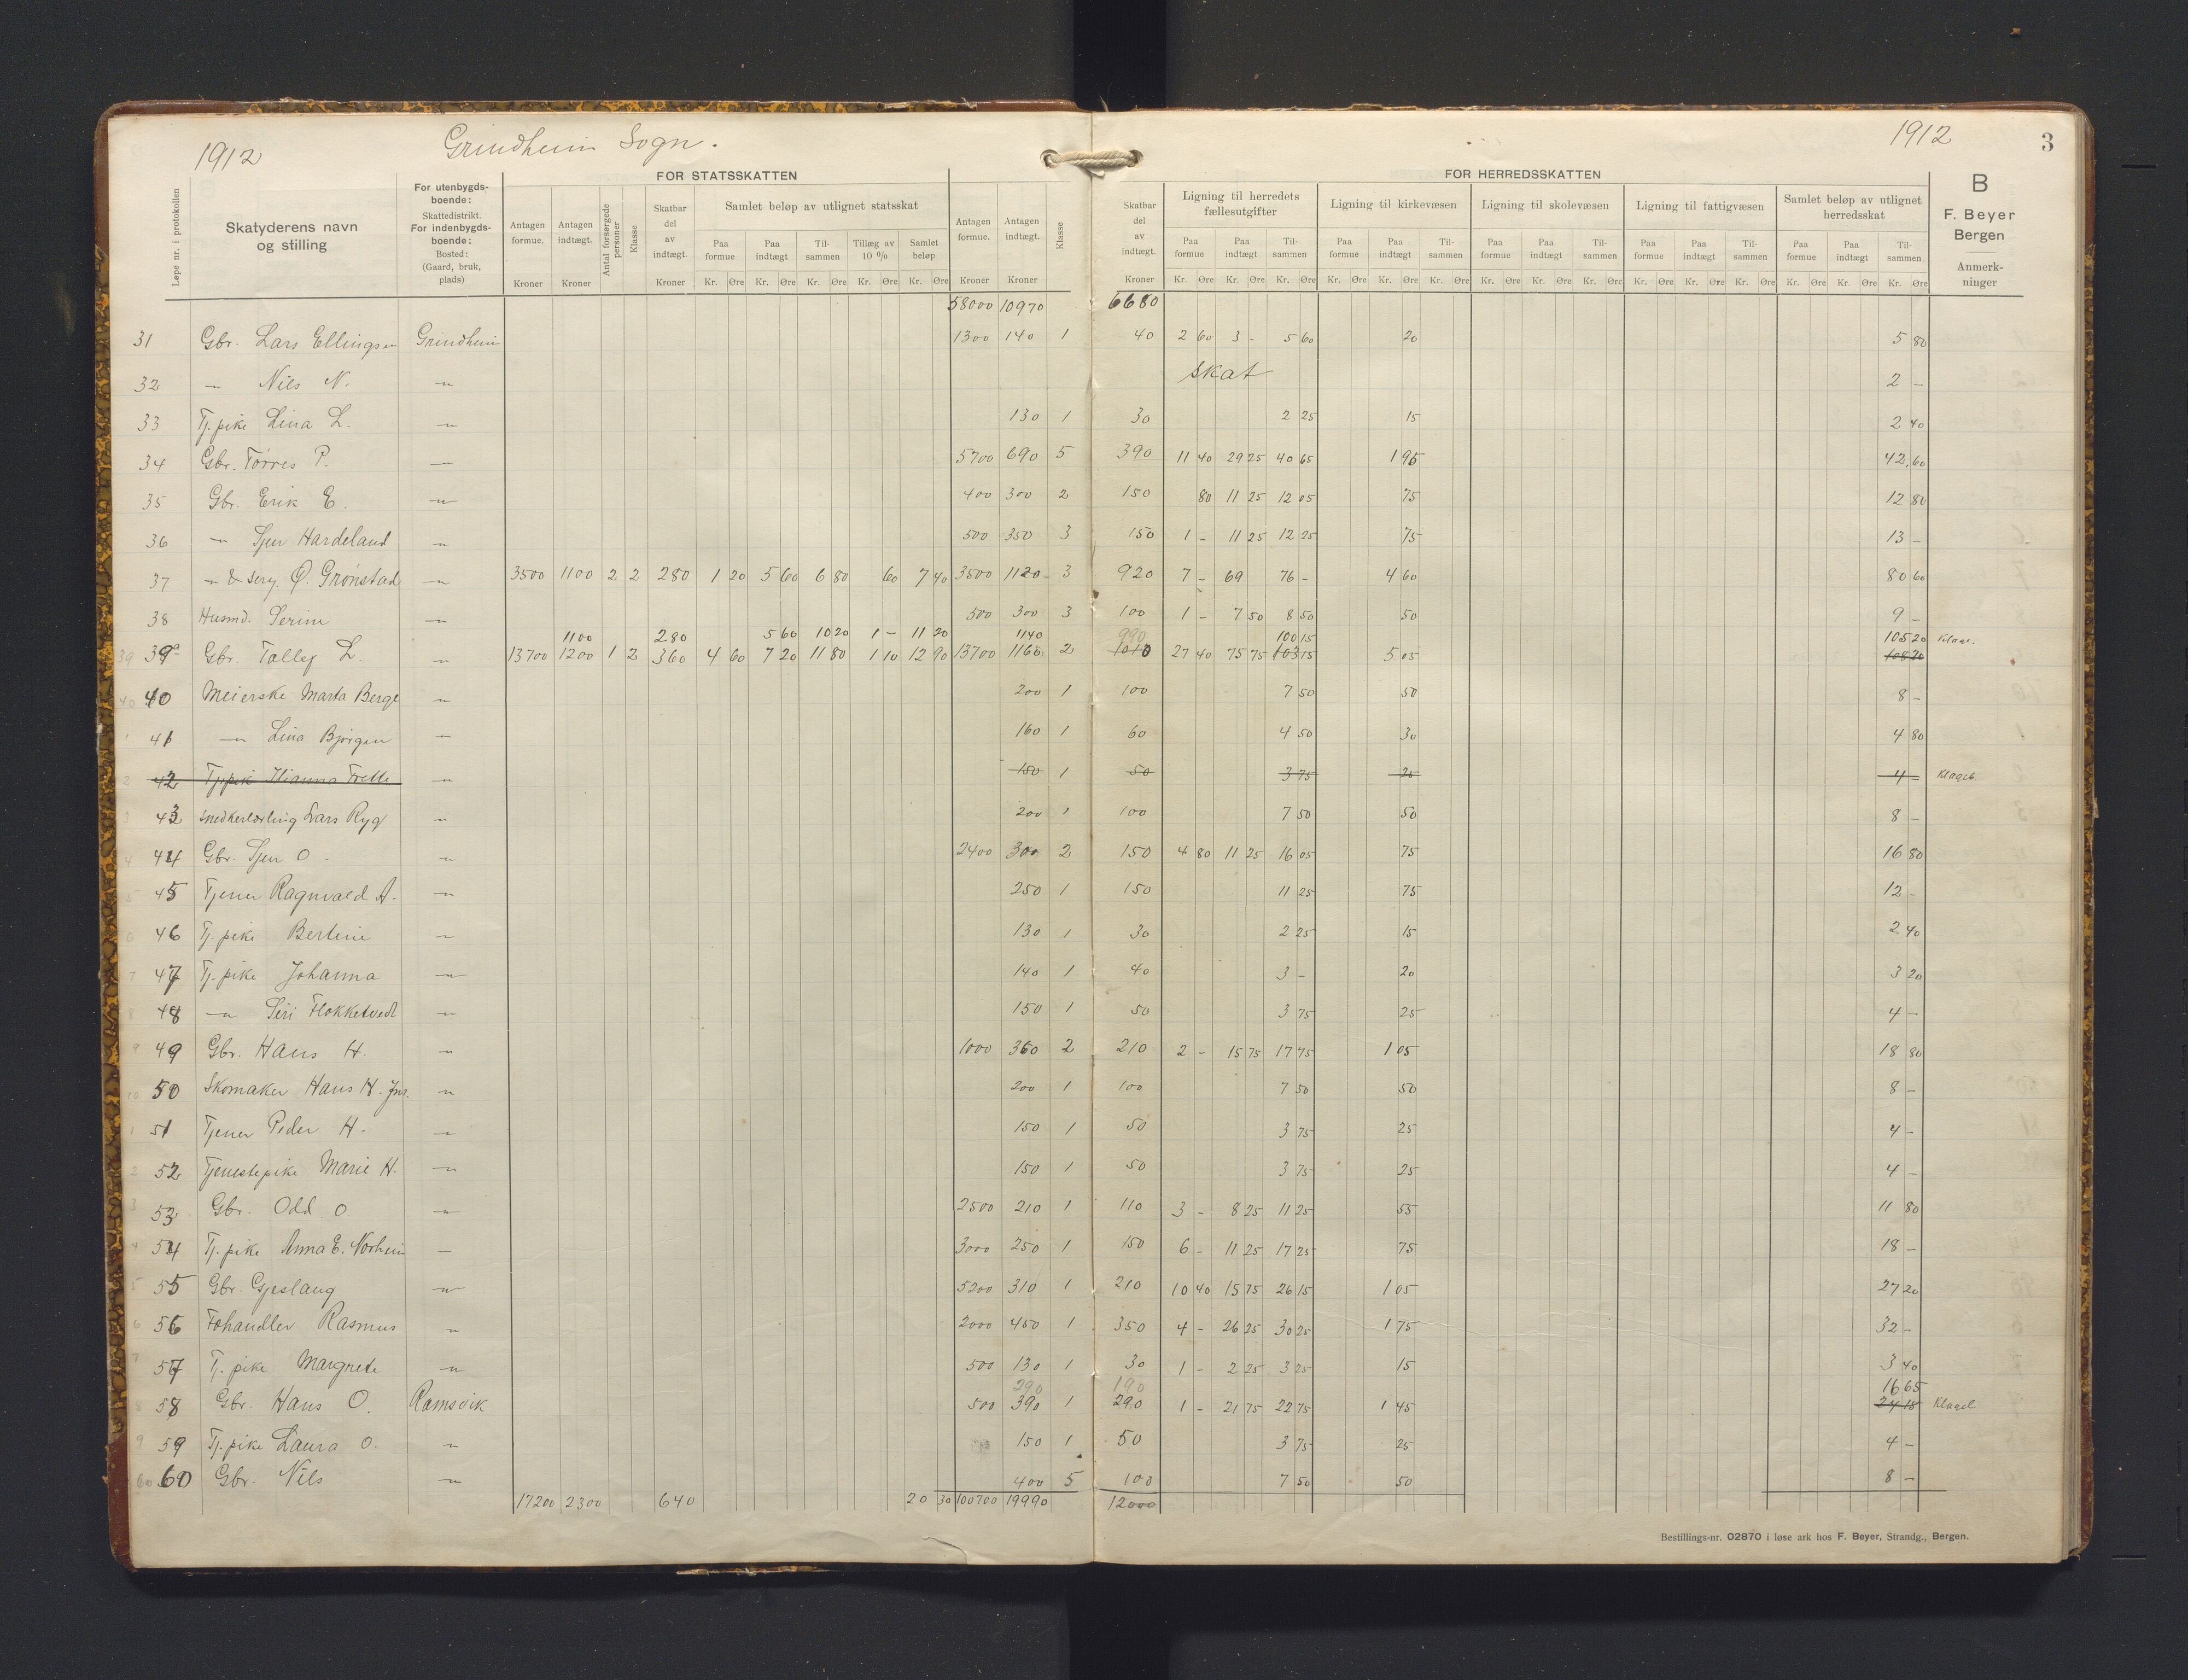 1912 Grindheim Sogn. 1912 3
FOR STATSSKATTEN FOR HERREDSSKATTEN
Løpe nr. i protokollen
Skatyderens navn og stilling
For utenbygds-boende: Skattedistrikt. For indenbygds-boende: Bosted: (Gaard, bruk, plads)
Antagen formue. Kroner
Antagen indtægt. Kroner
Antal forsørgede personer
Klasse
Skatbar del av indtægt. Kroner
Samlet beløp av utlignet statsskat
Paa formue Kr. Øre Paa indtægt Kr. Øre Til-sammen Kr. Øre Tillæg av 10 % Kr. Øre Samlet beløp Kr. Øre
Antagen formue. Kroner
Antagen indtægt. Kroner
Klasse
Skatbar del av indtægt. Kroner
Ligning til herredets fællesutgifter
Paa formue Kr. Øre Paa indtægt Kr. Øre Til-sammen Kr. Øre
Ligning til kirkevæsen
Paa formue Kr. Øre Paa indtægt Kr. Øre Til-sammen Kr. Øre
Ligning til skolevæsen
Paa formue Kr. Øre Paa indtægt Kr. Øre Til-sammen Kr. Øre
Ligning til fattigvæsen
Paa formue Kr. Øre Paa indtægt Kr. Øre Til-sammen Kr. Øre
Samlet beløp av utlignet herredsskat
Paa formue Kr. Øre Paa indtægt Kr. Øre Til-sammen Kr. Øre
B
F. Beyer
Bergen
Anmerk-ninger
58000 10970 6680
31 Gbr. Lars Ellingsen Grindheim 1300 140 1 40 2 60 3 - 5 60 20 5 80
32 -"- Nils N. -"- Skat 2 -
33 Tj. pike Lina L. -"- 130 1 30 2 25 15 2 40
34 Gbr. Tørres P. -"- 5700 690 5 390 11 40 29 25 40 65 1 95 42,60
35 Gbr. Erik E. -"- 400 300 2 150 80 11 25 12 05 75 12 80
36 -"- Sjur Hardeland -"- 500 350 3 150 1 - 11 25 12 25 75 13 -
37 -"- & Serg. O. Grønstad -"- 3500 1100 2 2 280 1 20 5 60 6 80 60 7 40 3500 1120 3 920 7 - 69 76 - 4 60 80 60
38 Husmd. Serine -"- 500 300 3 100 1 - 7 50 8 50 50 9 -
1100 280 5 60 10 20 1 - 11 20 1140 990 100 15 105 20 Klage.
39 39a Gbr. Tallej L. -"- 13700 1200 1 2 360 4 60 7 20 11 80 1 10 12 90 13700 1160 2 1010 27 40 75 75 103 15 5 05 108 20
40 40 Meierske Marta Berge -"- 200 1 100 7 50 50 8 -
1 41 -"- Lina Bjørgen -"- 160 1 60 4 50 30 4 80
2 42 Tj. pike Hanna Trette -"- 150 1 50 3 75 25 4 - Klaget.
3 43 Snedkerlærling Lars Ryg -"- 200 1 100 7 50 50 8 -
4 44 Gbr. Sjur O. -"- 2400 300 2 150 4 80 11 25 16 05 75 16 80
5 45 Tjener Ragnvald A. -"- 250 1 150 11 25 75 12 -
6 46 Tj. pike Bertine -"- 130 1 30 2 25 15 2 40
7 47 Tj. pike Johanna -"- 140 1 40 3 - 20 3 20
8 48 -"- Siri Flokketvedt -"- 150 1 50 3 75 25 4 -
9 49 Gbr. Hans H. -"- 1000 360 2 210 2 - 15 75 17 75 1 05 18 80
10 50 Skomaker Hans H. Jnr. -"- 200 1 100 7 50 50 8 -
1 51 Tjener Peder H. -"- 150 1 50 3 75 25 4 -
2 52 Tjenestepike Marie H. -"- 150 1 50 3 75 25 4 -
3 53 Gbr. Odd O. -"- 2500 210 1 110 3 - 8 25 11 25 55 11 80
4 54 Tj. pike Anna E. Norheim -"- 3000 250 1 150 6 - 11 25 17 25 75 18 -
5 55 Gbr. Gjeslaug -"- 5200 310 1 210 10 40 15 75 26 15 1 05 27 20
6 56 Fehandler Rasmus -"- 2000 450 1 350 4 - 26 25 30 25 1 75 32 -
7 57 Tj. pike Margrete -"- 500 130 1 30 1 - 2 25 3 25 15 3 40
290 190 16 65
8 58 Gbr. Hans O. Ramsvik 500 390 1 290 1 - 21 75 22 75 1 45 24 15 Klaget.
9 59 Tj. pike Laura O. -"- 150 1 50 3 75 25 4 -
60 60 Gbr. Nils -"- 400 5 100 7 50 50 8 -
17200 2300 640 20 30 100700 19990 12000
Bestillings-nr. 02870 i løse ark hos F. Beyer, Strandg., Bergen.